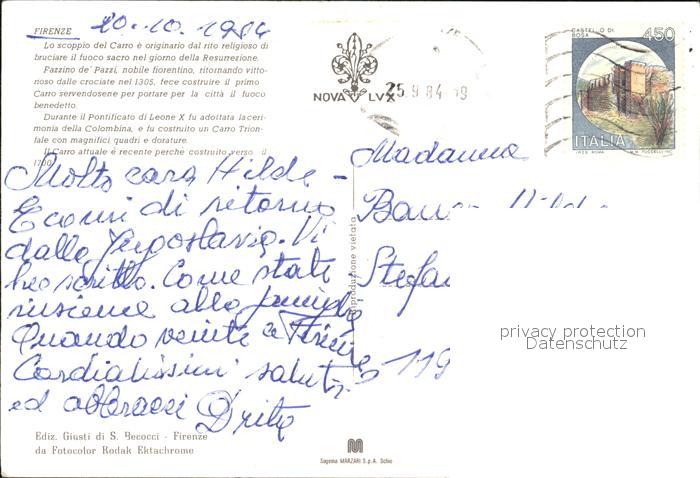 FIRENZE 20-10-1984
Lo scoppio del Carro è originario dal rito religioso di
bruciare il fuoco sacro nel giorno della Resurrezione.
Pazzino de' Pazzi, nobile fiorentino, ritornando vitto-
rioso dalle crociate nel 1305, fece costruire il primo
Carro servendosene per portare per la città il fuoco
benedetto.
Durante il Pontificato di Leone X fu adottata la ceri-
monia della Colombina, e fu costruito un Carro Trion-
fale con magnifici quadri e dorature.
Il Carro attuale è recente perchè costruito verso il
1700.
Molto cara Hilde -
Eccomi di ritorno
dalla Jugoslavia. Vi
ho scritto. Come state
insieme alla famiglia
Quando venite a Firenze
Cordialissimi saluti
ed abbracci
Ediz. Giusti di S. Becocci - Firenze
da Fotocolor Kodak Ektachrome
riproduzione vietata
Sagema MARZARI S.p.A. Schio
NOVA LVX
25. 9 84 19
CASTELLO DI
ROSA
450
ITALIA
Madamma
Stefan
119
privacy protection
Datenschutz